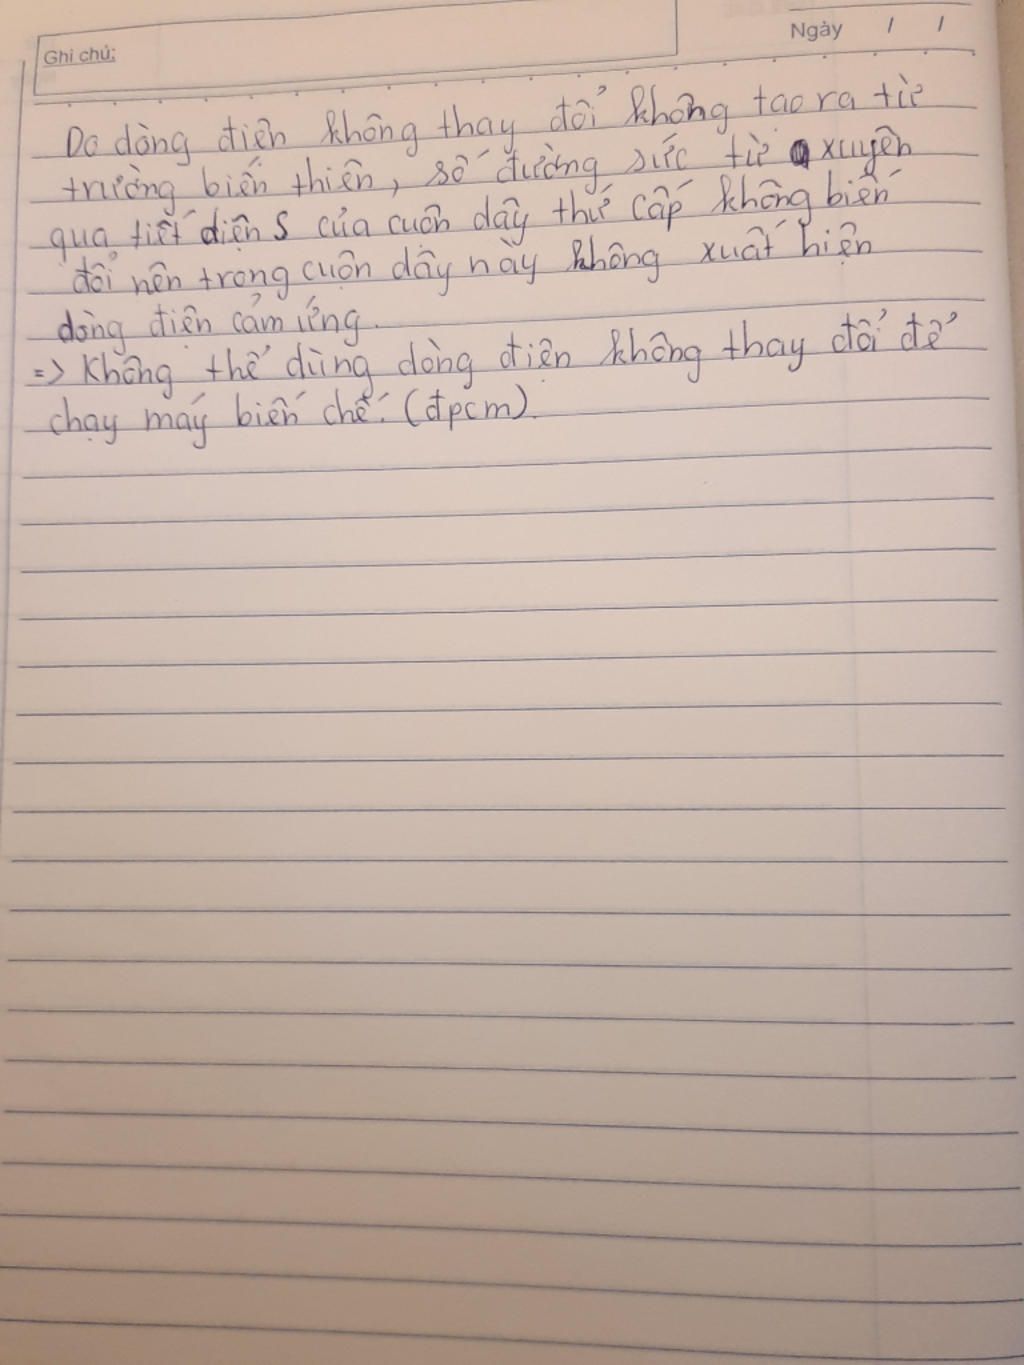 Ghi chú:
Ngày / /
Do dòng điện không thay đổi không tạo ra từ
trường biến thiên, số đường sức từ xuyên
qua tiết diện S của cuộn dây thứ cấp không biến
đổi nên trong cuộn dây này không xuất hiện
dòng điện cảm ứng.
=> Không thể dùng dòng điện không thay đổi để
chạy máy biến chế. (đpcm).